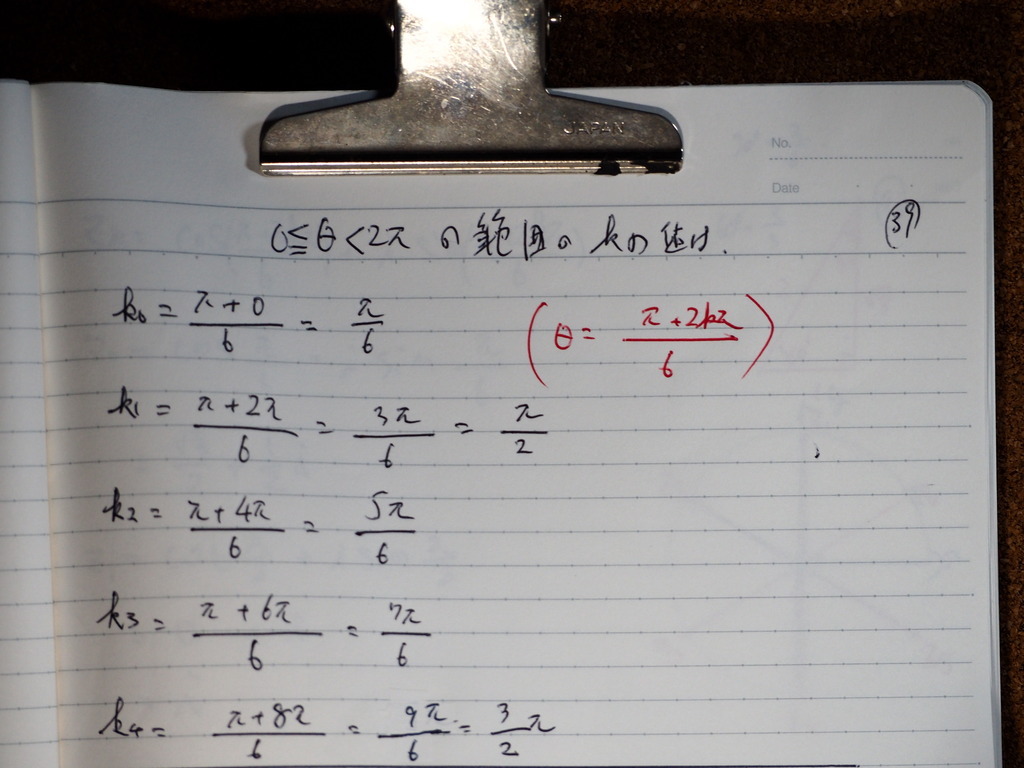 JAPAN
No.
Date
0≦θ<2π の範囲の kの値は.
(39)
k₀ = (π+0)/6 = π/6
(θ = (π+2kπ)/6)
k₁ = (π+2π)/6 = 3π/6 = π/2
k₂ = (π+4π)/6 = 5π/6
k₃ = (π+6π)/6 = 7π/6
k₄ = (π+8π)/6 = 9π/6 = 3/2 π